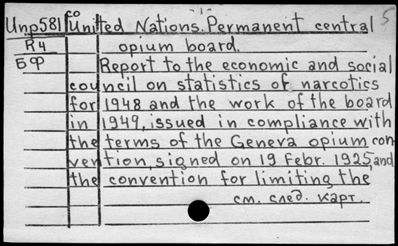 Unp581 co United Nations. Permanent central 5
R4 opium board.
БФ Report to the economic and social
council on statistics of narcotics
for 1948 and the work of the board
in 1949, issued in compliance with
the terms of the Geneva opium con-
vention, signed on 19 Febr. 1925, and
the convention for limiting the
см. след. карт.